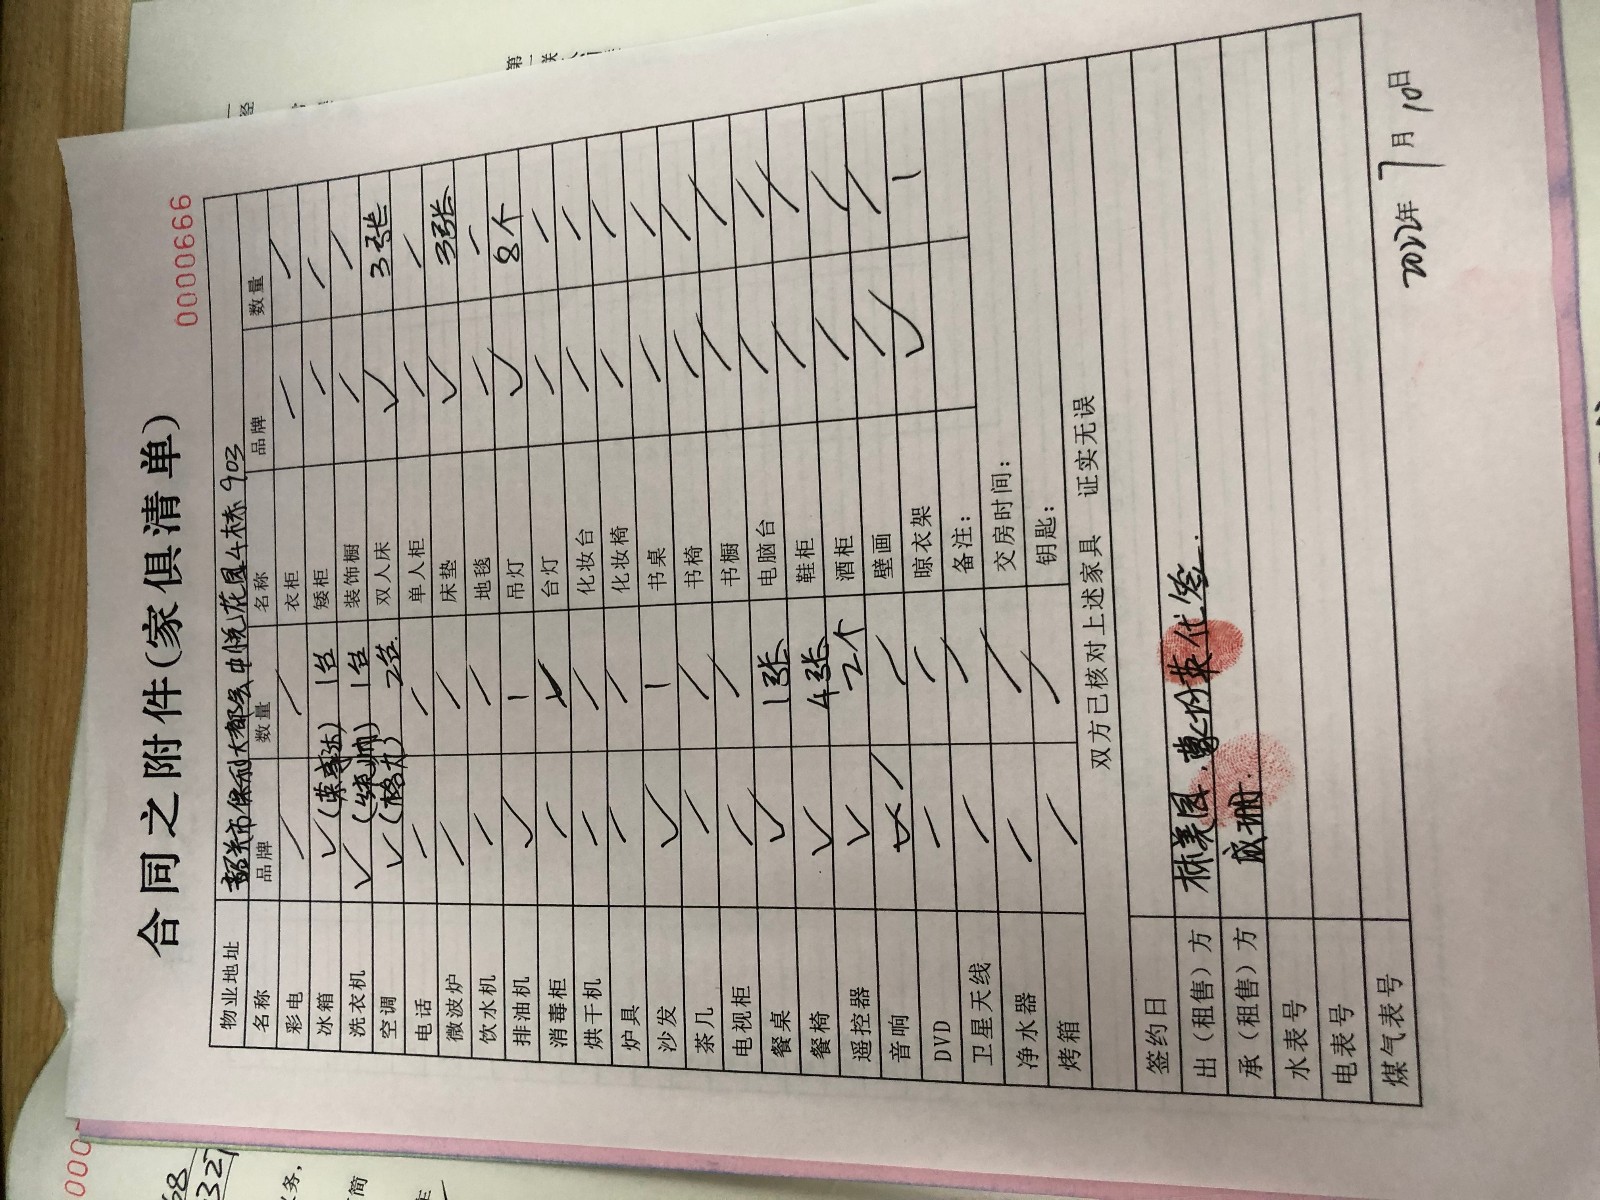 合同之附件(家俱清单)
0000666
物业地址 韶关市保利大都会中悦花园4栋903
名称 品牌 数量 名称 品牌 数量
彩电 / / 衣柜 / /
冰箱 ✓ 1台 矮柜 / /
洗衣机 ✓ 1台 装饰橱 / /
空调 ✓(格力) 2台 双人床 ✓ 3张
电话 / / 单人柜 / /
微波炉 / / 床垫 ✓ 3张
饮水机 / / 地毯 / /
排油机 ✓ 1 吊灯 ✓ 8个
消毒柜 / ✓ 台灯 / /
烘干机 / / 化妆台 / /
炉具 / / 化妆椅 / /
沙发 ✓ 1 书桌 / /
茶几 / / 书椅 / /
电视柜 / / 书橱 / /
餐桌 ✓ 1张 电脑台 / /
餐椅 ✓ 4张 鞋柜 / /
遥控器 ✓ 2个 酒柜 / /
音响 / / 壁画 / /
DVD / / 晾衣架 ✓ 1
卫星天线 / / 备注:
净水器 / / 交房时间:
烤箱 / / 钥匙:
双方已核对上述家具 证实无误
签约日
出(租售)方 林美园 代签.
承(租售)方
水表号
电表号
煤气表号
2022年7月10日
第一联